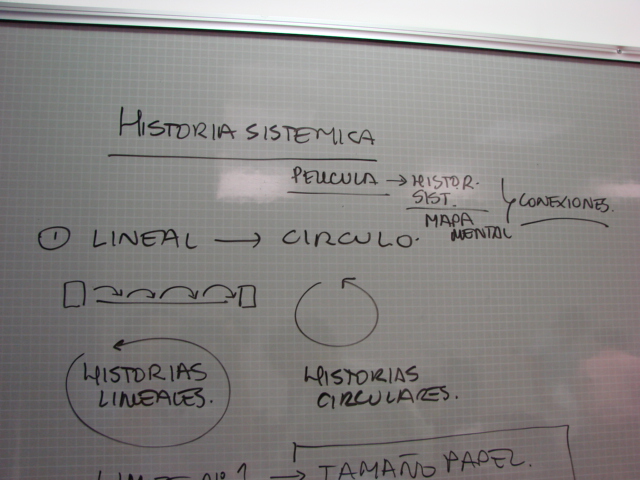 HISTORIA SISTEMICA
PELICULA → HISTOR.
SIST.
MAPA
MENTAL
CONEXIONES.
① LINEAL → CIRCULO.
HISTORIAS
LINEALES.
HISTORIAS
CIRCULARES.
Nº 1 → TAMAÑO PAPEL.